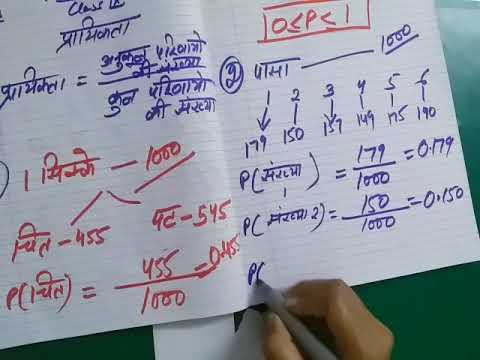 Class IX
प्रायिकता
प्रायिकता = अनुकूल परिणामों की संख्या / कुल परिणामों की संख्या
0≤P≤1
1 सिक्के — 1000
चित – 455 पट – 545
P(चित) = 455/1000 = 0.455
② पासा — 1000
1 2 3 4 5 6
179 150 157 149 175 190
P(संख्या 1) = 179/1000 = 0.179
P(संख्या 2) = 150/1000 = 0.150
P(